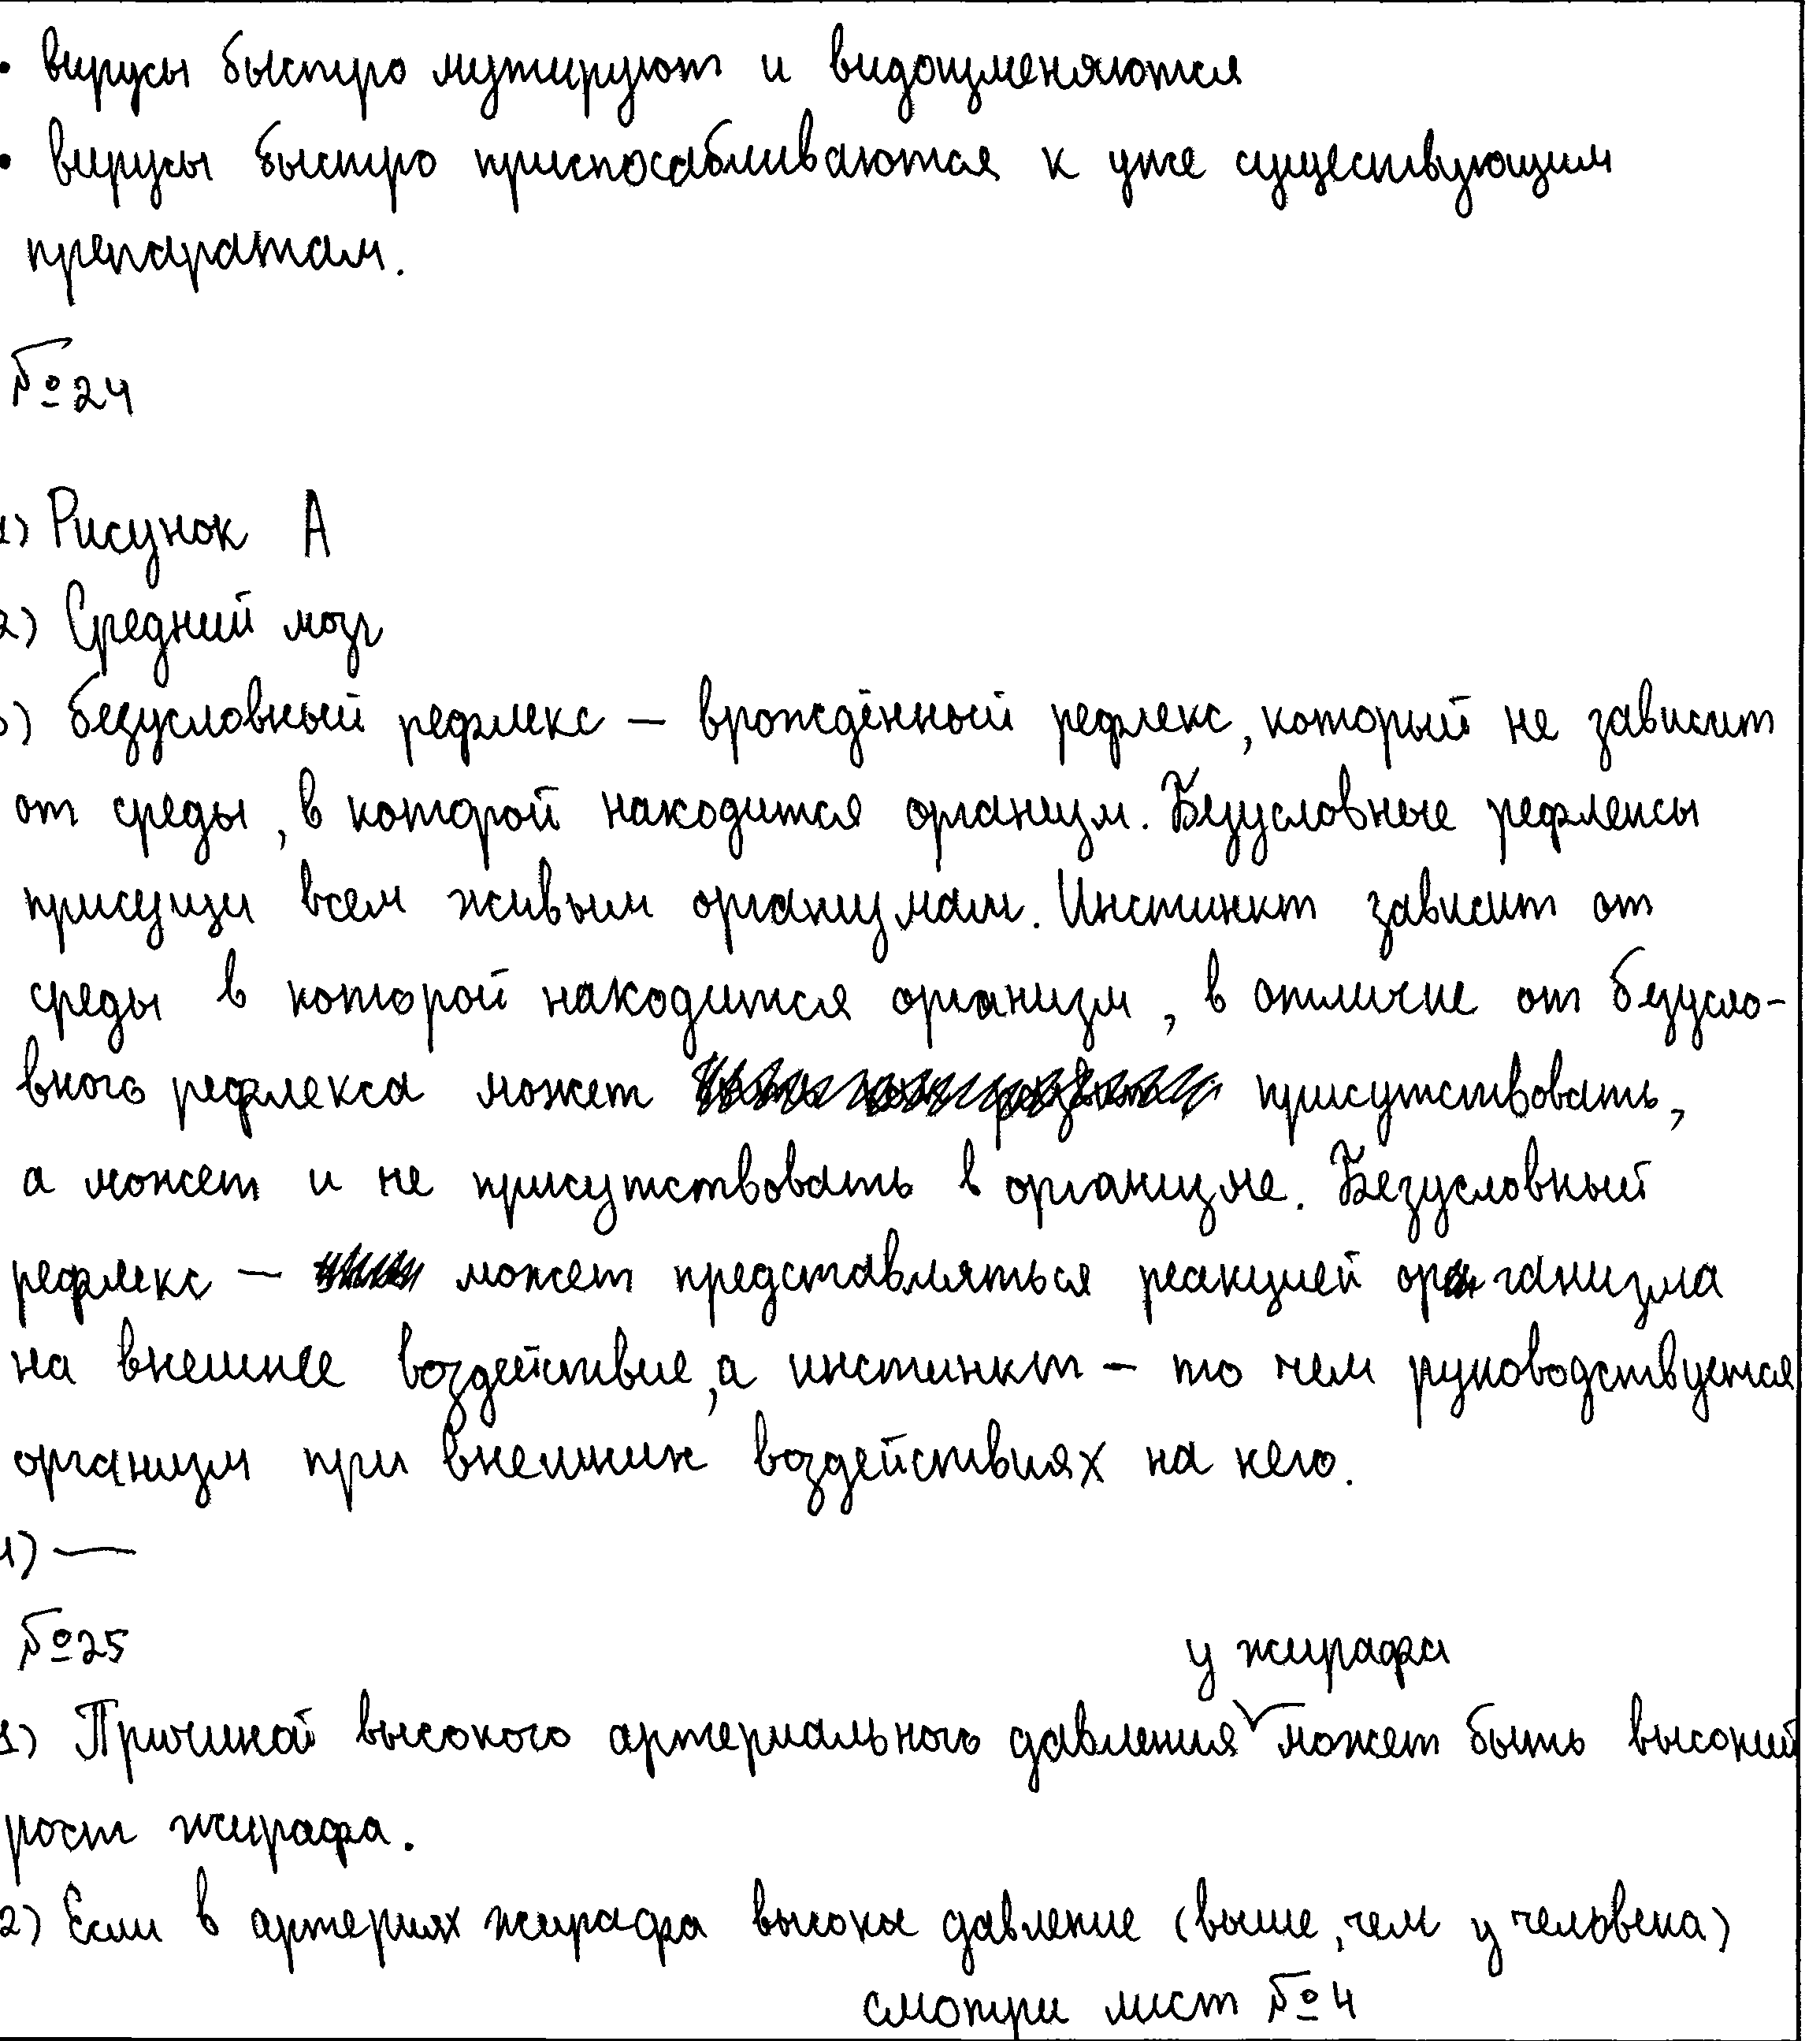 • вирусы быстро мутируют и видоизменяются
• вирусы быстро приспосабливаются к уже существующим
препаратам.
№24
1) Рисунок А
2) Средний мозг
3) безусловный рефлекс — врождённый рефлекс, который не зависит
от среды, в которой находится организм. Безусловные рефлексы
присущи всем живым организмам. Инстинкт зависит от
среды в которой находится организм, в отличие от безусло-
вного рефлекса может присутствовать,
а может и не присутствовать в организме. Безусловный
рефлекс — может представляться реакцией организма
на внешнее воздействие, а инстинкт – то чем руководствуется
организм при внешних воздействиях на него.
4) —
№25
у жирафа
1) Причиной высокого артериального давления может быть высокий
рост жирафа.
2) Если в артериях жирафа высокое давление (выше, чем у человека)
смотри лист №4